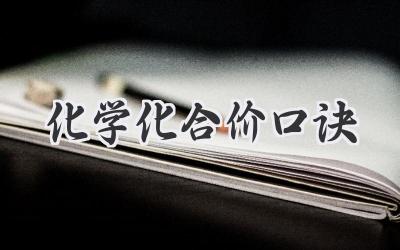 化学化合价口诀